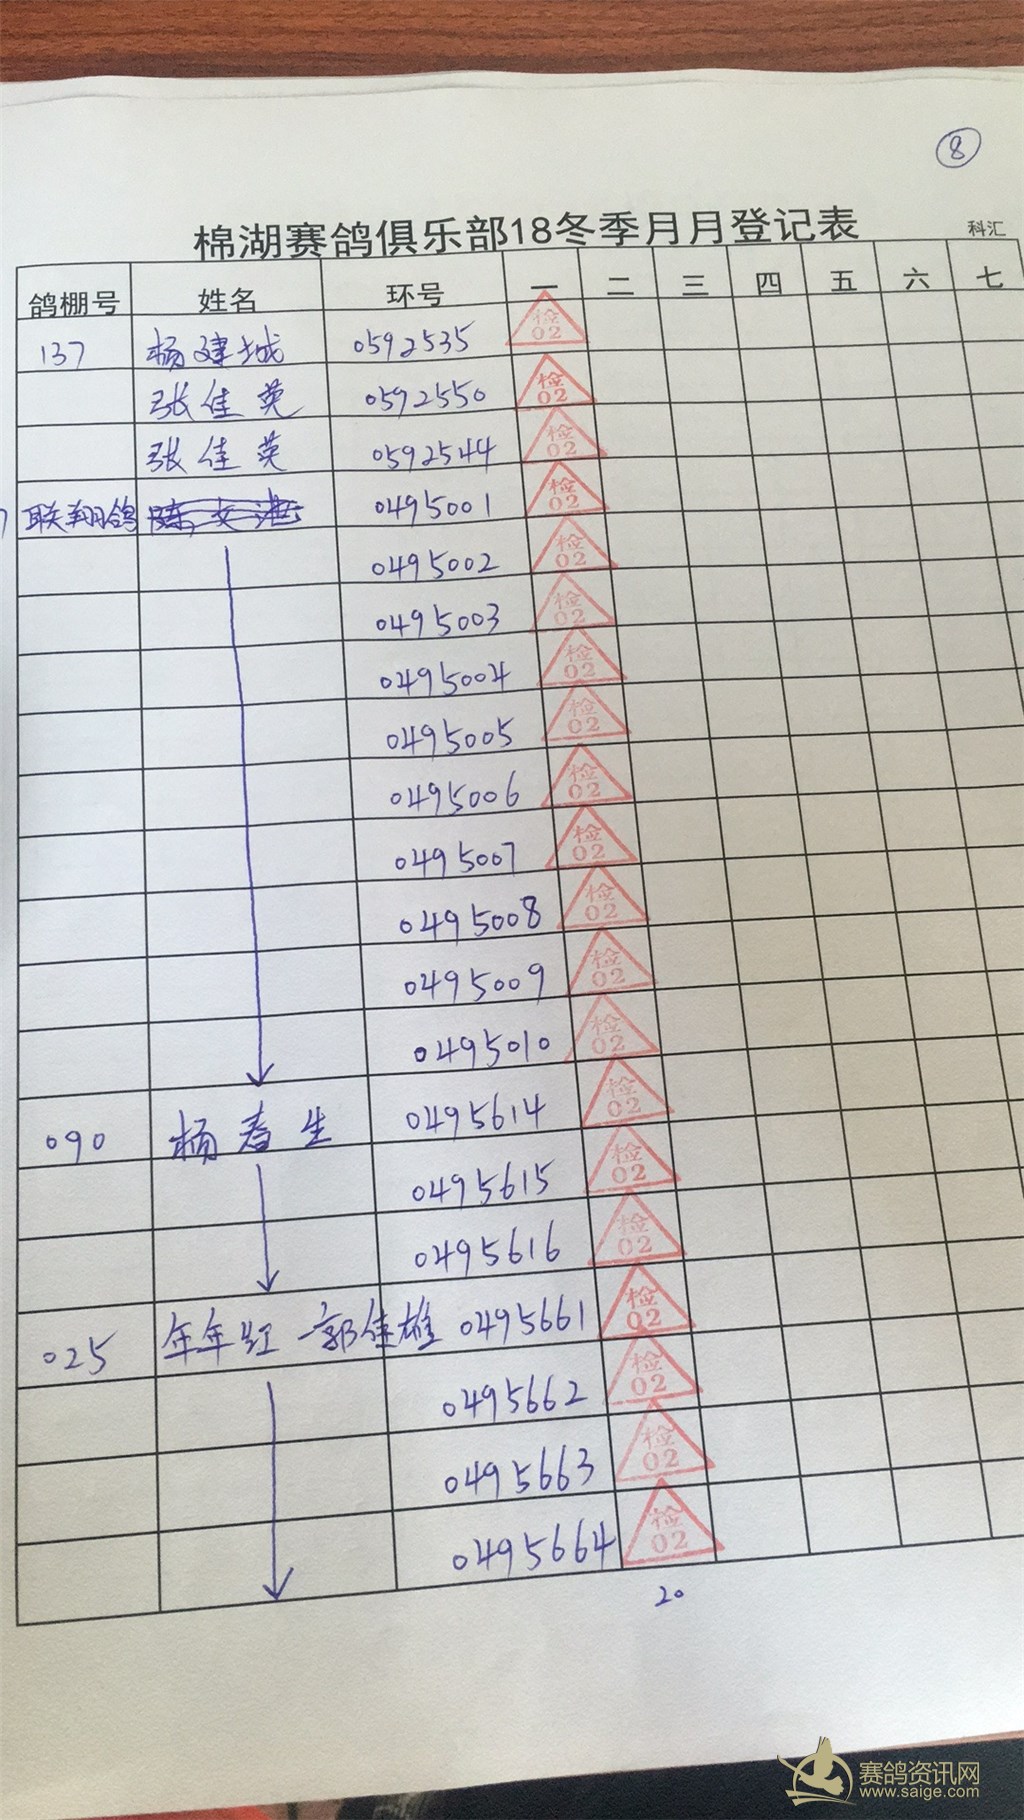 8
棉湖赛鸽俱乐部18冬季月月登记表 科汇
鸽棚号 姓名 环号 一 二 三 四 五 六 七
137 杨建城 0592535 检 02
张佳英 0592550 检 02
张佳英 0592544 检 02
联翔鸽 0495001 检 02
0495002 检 02
0495003 检 02
0495004 检 02
0495005 检 02
0495006 检 02
0495007 检 02
0495008 检 02
0495009 检 02
0495010 检 02
090 杨春生 0495614 检 02
0495615 检 02
0495616 检 02
025 年年红一郭佳雄 0495661 检 02
0495662 检 02
0495663 检 02
0495664 检 02
20
赛鸽资讯网
www.saige.com